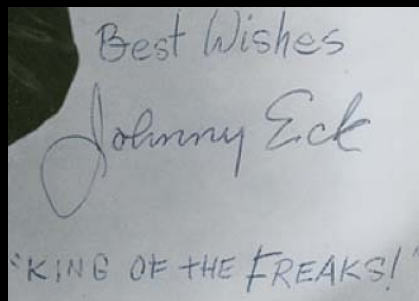 Best Wishes
Johnny Eck
"KING OF THE FREAKS!"